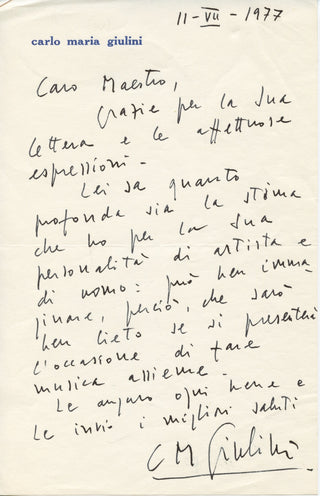 11-VII-1977
carlo maria giulini
Caro Maestro,
Grazie per la Sua
lettera e le affettuose
espressioni -
Lei sa quanto
profonda sia la stima
che ho per la Sua
personalità di artista e
di uomo: può ben imma-
ginare, perciò, che sarò
ben lieto se si presenterà
l'occasione di fare
musica assieme -
Le auguro ogni bene e
Le invio i migliori saluti
CM Giulini